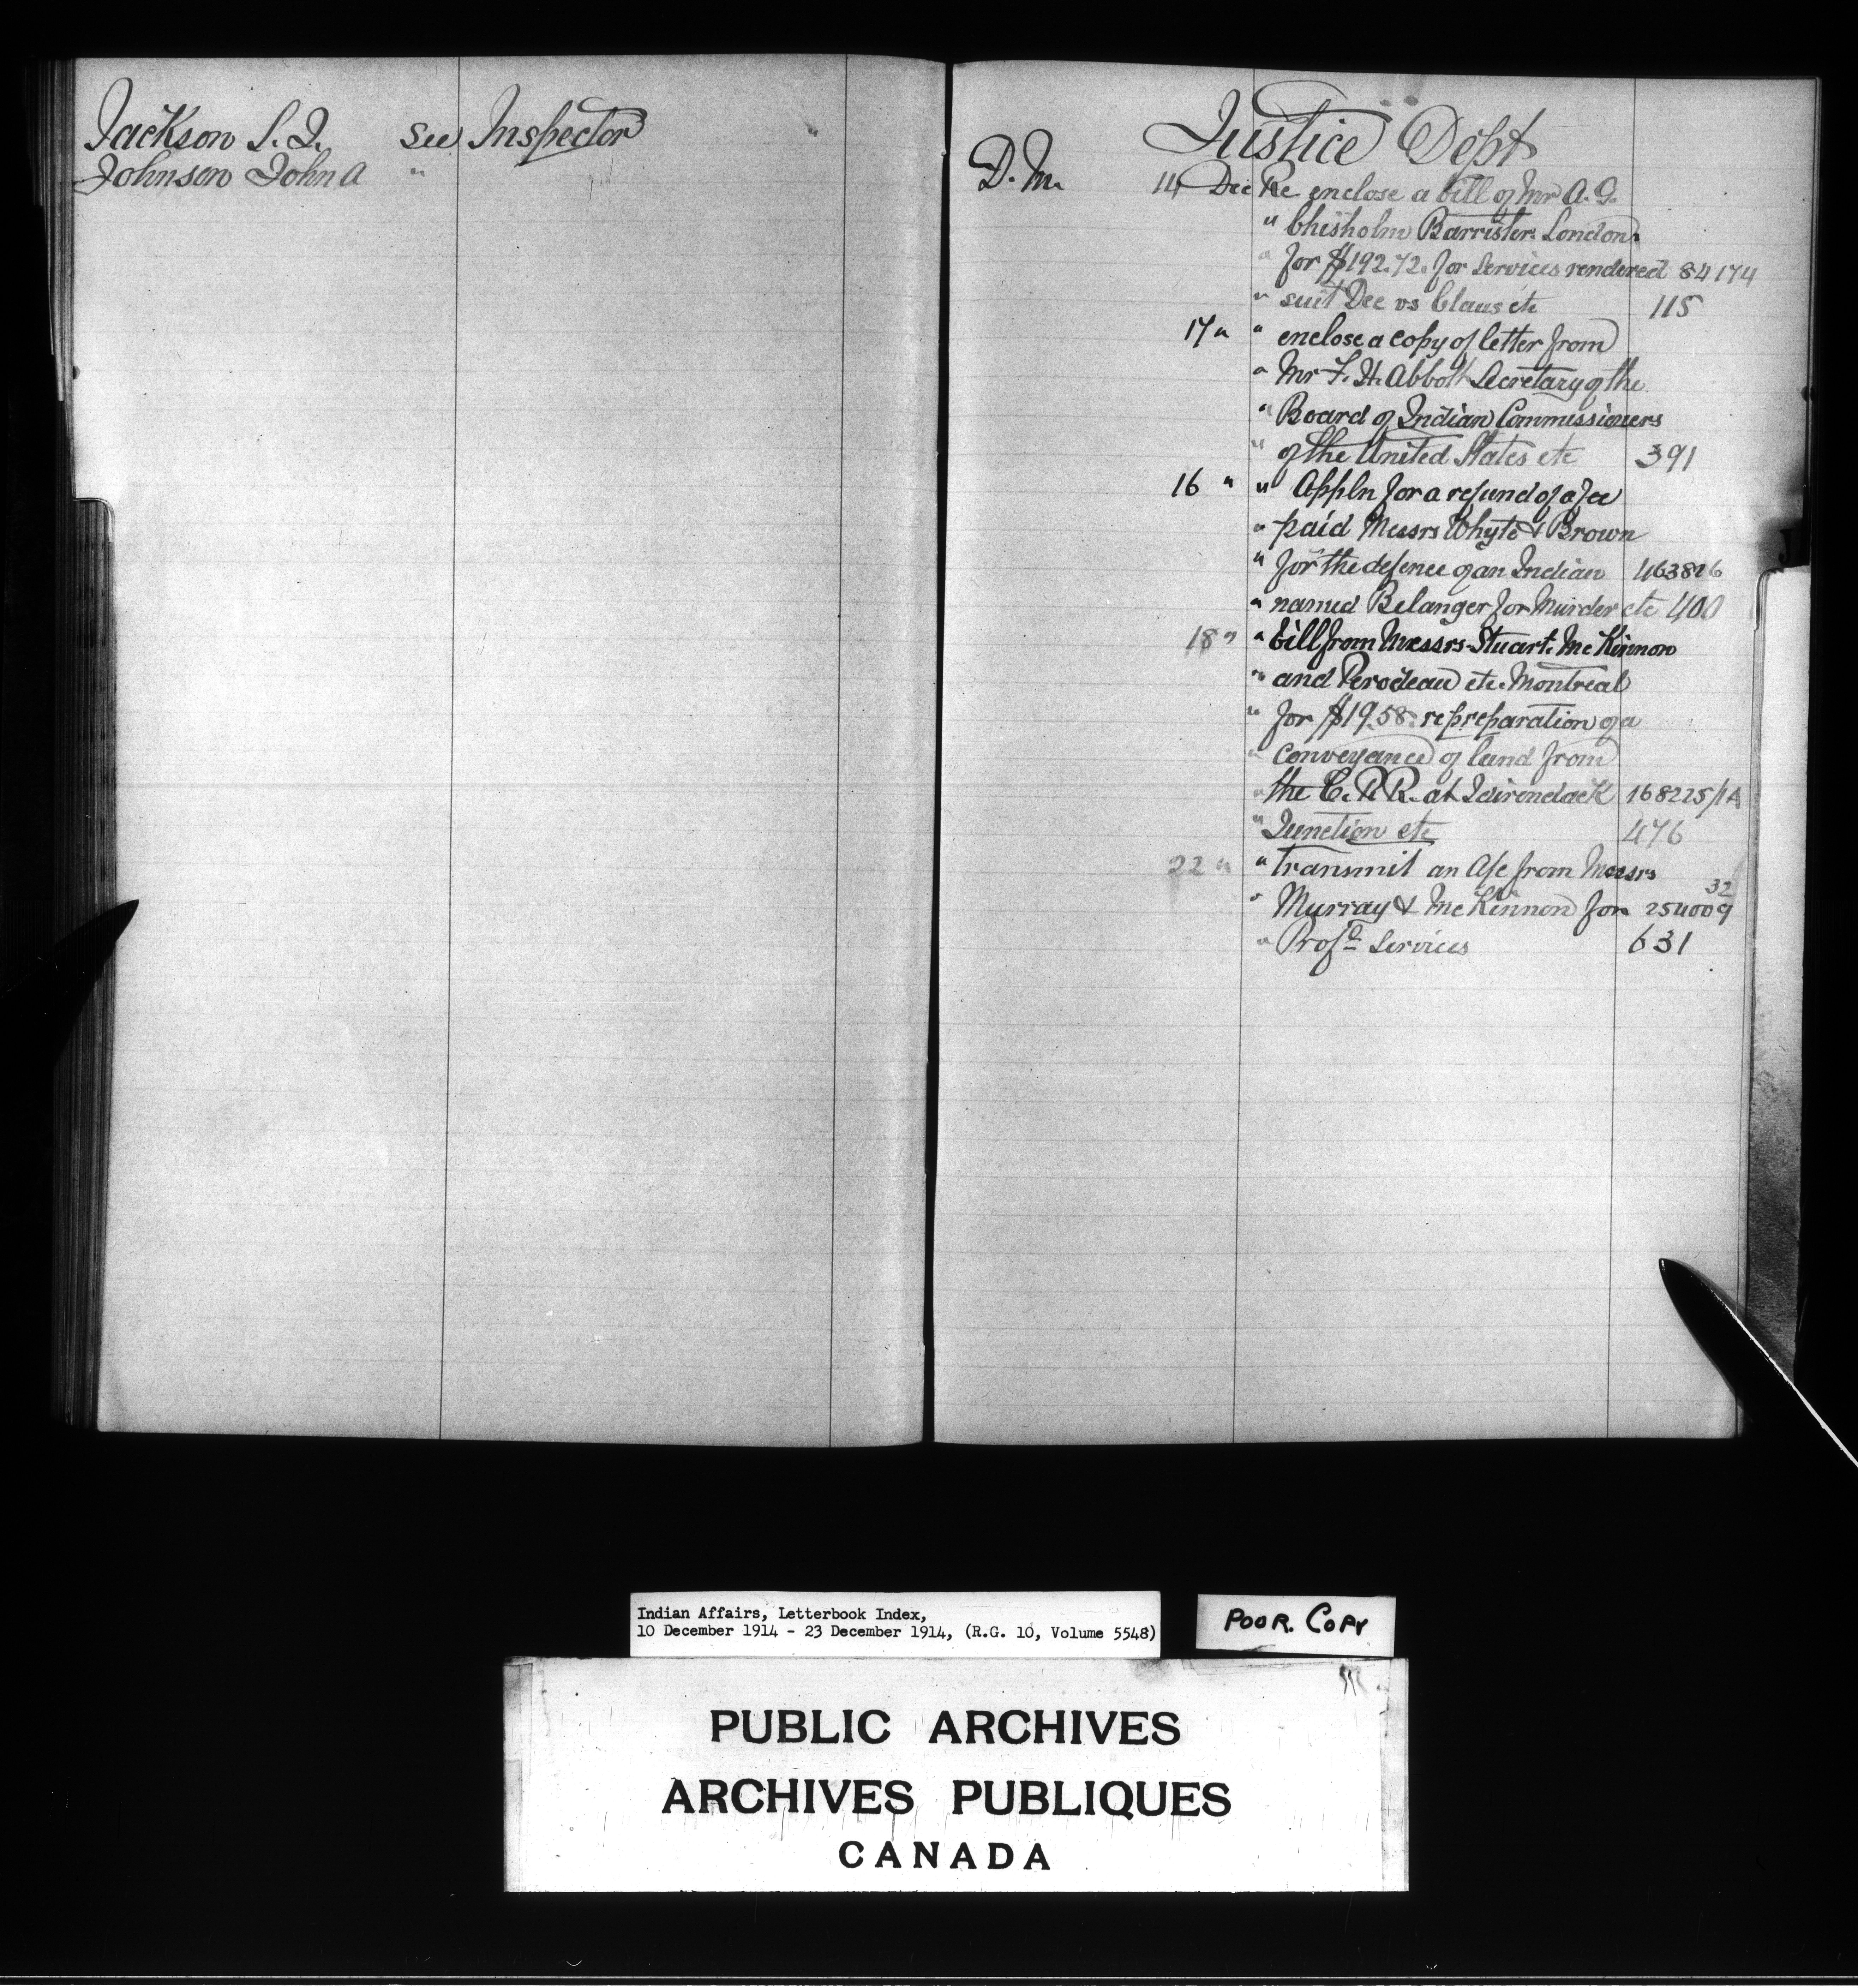 Jackson S. J. See Inspector
Johnson John A "
Justice Dept
D. M. 14 Dec Re enclose a bill of Mr A. G.
" Chisholm Barrister London
" for $192.72. for services rendered 84174
" suit Dee vs Claus etc 115
17 " " enclose a copy of letter from
" Mr F. H. Abbott Secretary of the
" Board of Indian Commissioners
" of the United States etc 391
16 " " Appln for a refund of a fee
" paid Messrs Whyte & Brown
" for the defence of an Indian 463826
" named Belanger for Murder etc 400
18 " " bill from Messrs Stuart. McKinnon
" and Perodeau etc. Montreal
" for $19.58. re preparation of a
" conveyance of land from
" the C. P. R. at Adirondack 168225/1A
" Junction etc 476
22 " " transmit an A/c from Messrs
" Murray & McKinnon for 254009 32
" Profl Services 631
Indian Affairs, Letterbook Index,
10 December 1914 - 23 December 1914, (R.G. 10, Volume 5548)
POOR. COPY
PUBLIC ARCHIVES
ARCHIVES PUBLIQUES
CANADA